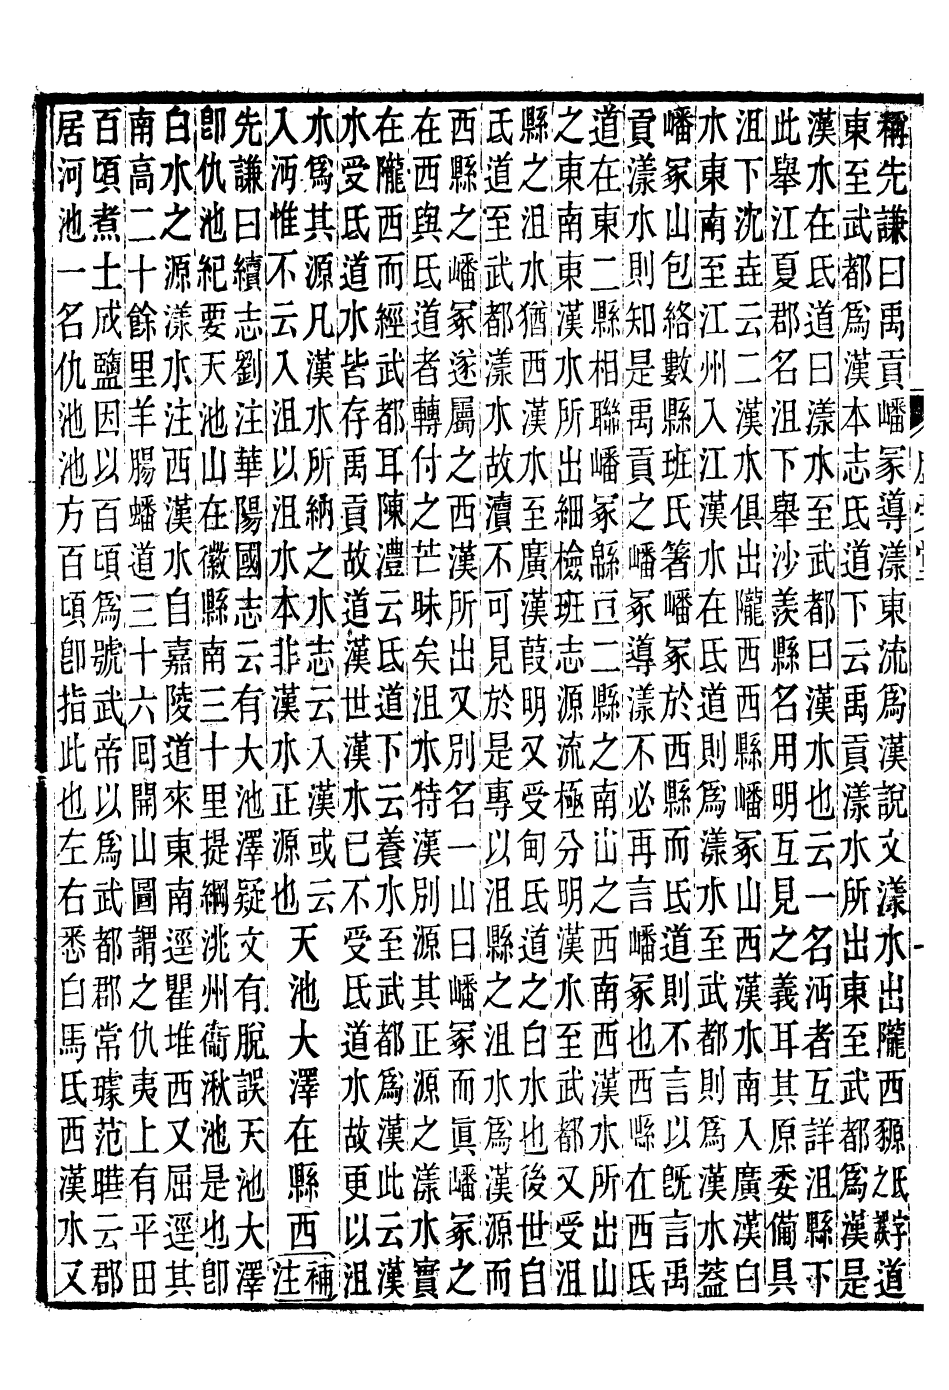 稱先謙曰禹貢嶓冢導漾東流爲漢說文漾水出隴西豲氐字之誤道
東至武都爲漢本志氐道下云禹貢漾水所出東至武都爲漢是
漢水在氐道曰漾水至武都曰漢水也云一名沔者互詳沮縣下
此舉江夏郡名沮下舉沙羨縣名用明互見之義耳其原委備具
沮下沈垚云二漢水俱出隴西西縣嶓冢山西漢水南入廣漢白
水東南至江州入江漢水在氐道則爲漾水至武都則爲漢水蓋
嶓冢山包絡數縣班氏箸嶓冢於西縣而氐道則不言以旣言禹
貢漾水則知是禹貢之嶓冢導漾不必再言嶓冢也西縣在西氐
道在東二縣相聯嶓冢緜亘二縣之南山之西南西漢水所出山
之東南東漢水所出細檢班志源流極分明漢水至武都又受沮
縣之沮水猶西漢水至廣漢葭明又受甸氐道之白水也後世自
氐道至武都漾水故瀆不可見於是專以沮縣之沮水爲漢源而
西縣之嶓冢遂屬之西漢所出又別名一山曰嶓冢而眞嶓冢之
在西與氐道者轉付之芒昧矣沮水特漢別源其正源之漾水實
在隴西而經武都耳陳澧云氐道下云養水至武都爲漢此云漢
水受氐道水皆存禹貢故道漢世漢水已不受氐道水故更以沮
水爲其源凡漢水所納之水志云入漢或云
入沔惟不云入沮以沮水本非漢水正源也
天池大澤在縣西補注
先謙曰續志劉注華陽國志云有大池澤疑文有脫誤天池大澤
卽仇池紀要天池山在徽縣南三十里提綱洮州衞湫池是也卽
白水之源漾水注西漢水白嘉陵道來東南逕瞿堆西又屈逕其
南高二十餘里羊腸蟠道三十六回開山圖謂之仇夷上有平田
百頃煮土成鹽因以百頃爲號武帝以爲武都郡常璩范曄云郡
居河池一名仇池池方百頃卽指此也左右悉白馬氐西漢水又